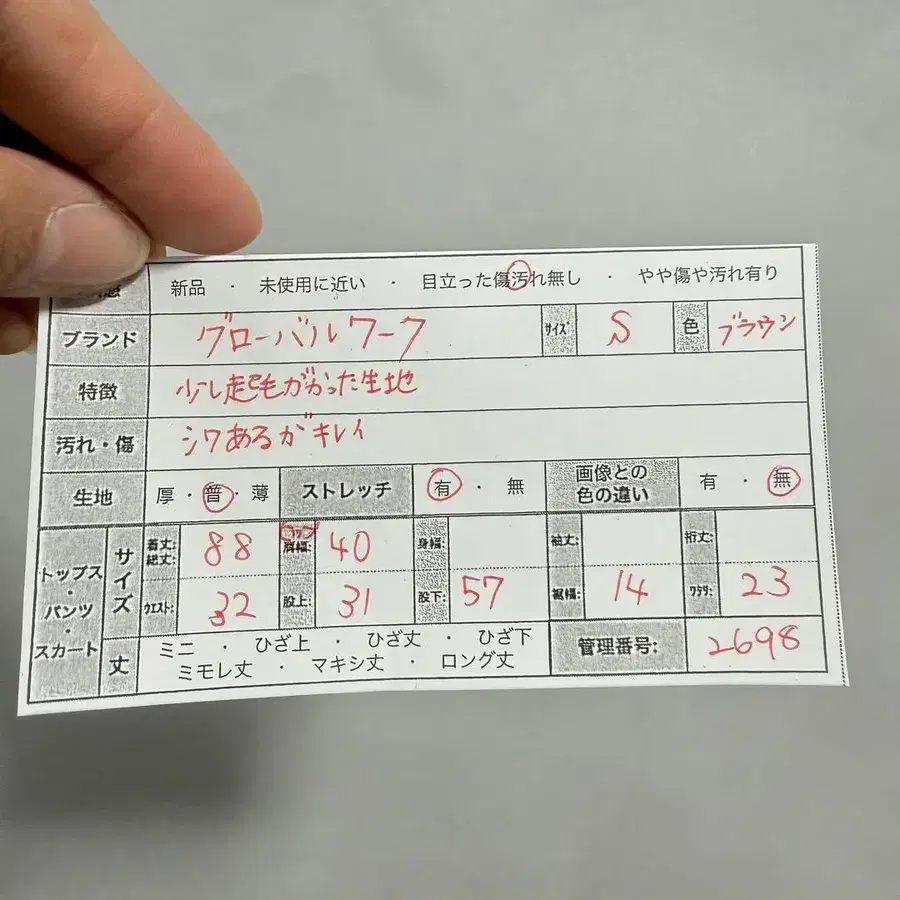 新品 ・ 未使用に近い ・ 目立った傷汚れ無し ・ やや傷や汚れ有り
ブランド グローバルワーク サイズ S 色 ブラウン
特徴 少し起毛がかった生地
汚れ・傷 シワあるがキレイ
生地 厚・普・薄 ストレッチ 有・無 画像との色の違い 有・無
トップス・パンツ・スカート サイズ 着丈:総丈: 88 肩幅: 40 身幅: 袖丈: 裄丈:
ウエスト: 32 股上: 31 股下: 57 裾幅: 14 ワタリ: 23
丈 ミニ ・ ひざ上 ・ ひざ丈 ・ ひざ下
ミモレ丈 ・ マキシ丈 ・ ロング丈
管理番号: 2698